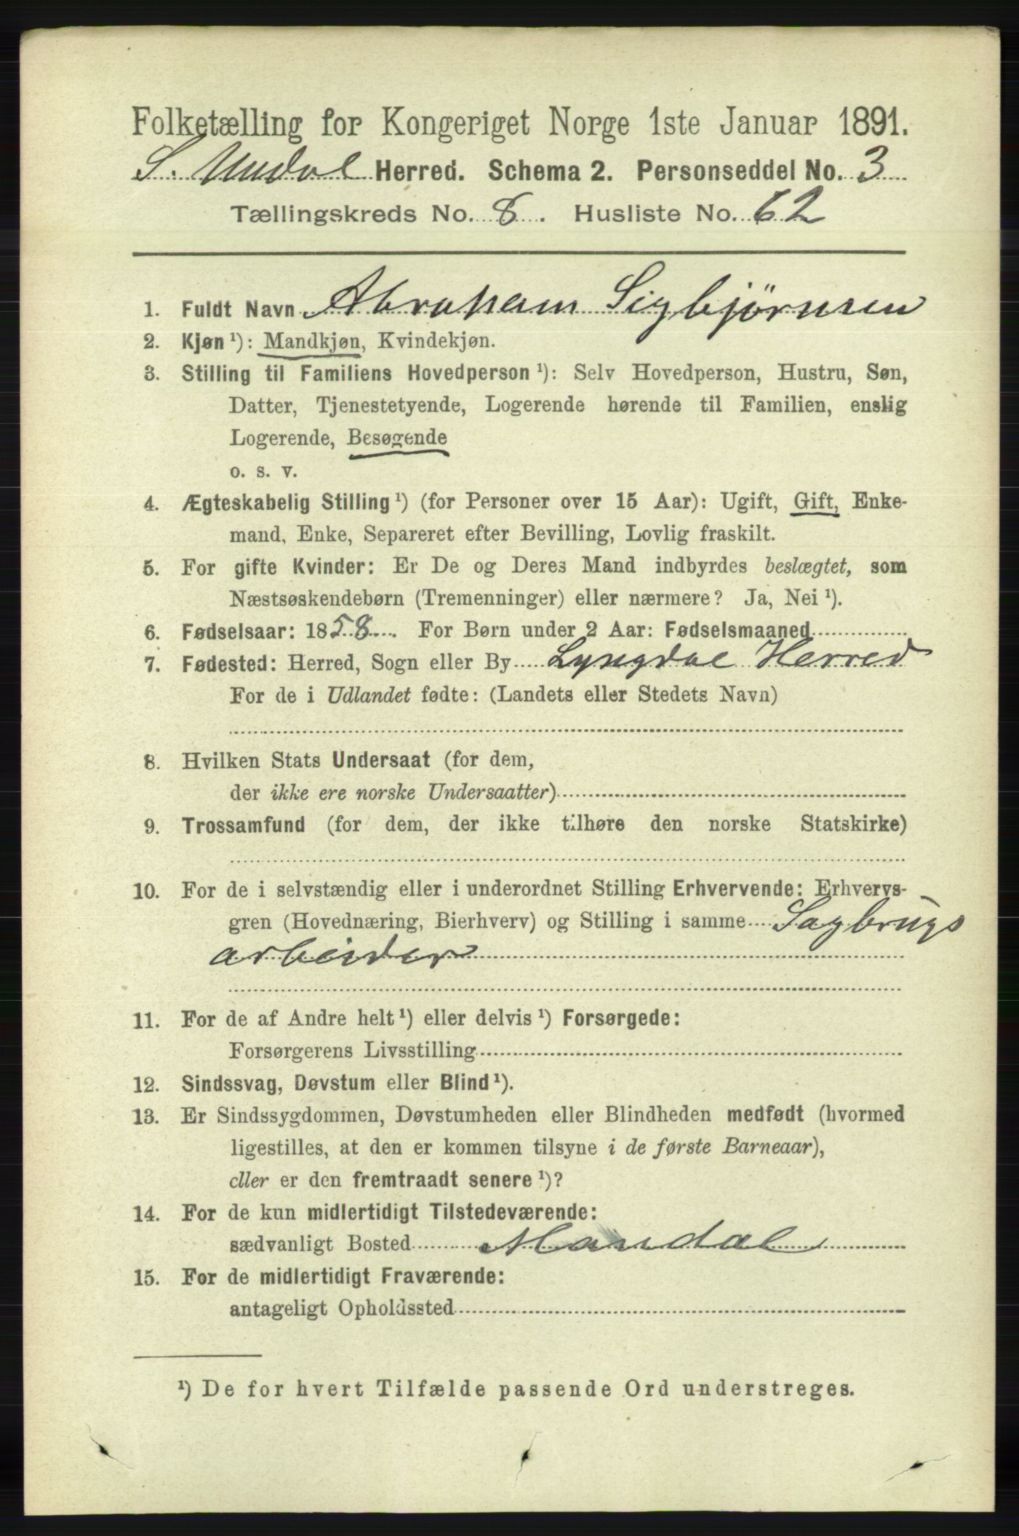 Folketælling for Kongeriget Norge 1ste Januar 1891.
S. Undal Herred. Schema 2. Personseddel No. 3
Tællingskreds No. 8. Husliste No. 62
1. Fuldt Navn Abraham Sigbjørnsen
2. Kjøn ¹): Mandkjøn, Kvindekjøn.
3. Stilling til Familiens Hovedperson ¹): Selv Hovedperson, Hustru, Søn,
Datter, Tjenestetyende, Logerende hørende til Familien, enslig
Logerende, Besøgende
o. s. v.
4. Ægteskabelig Stilling ¹) (for Personer over 15 Aar): Ugift, Gift, Enke-
mand, Enke, Separeret efter Bevilling, Lovlig fraskilt.
5. For gifte Kvinder: Er De og Deres Mand indbyrdes beslægtet, som
Næstsøskendebørn (Tremenninger) eller nærmere? Ja, Nei ¹).
6. Fødselsaar: 1858. For Børn under 2 Aar: Fødselsmaaned
7. Fødested: Herred, Sogn eller By Lyngdal Herred
For de i Udlandet fødte: (Landets eller Stedets Navn)
8. Hvilken Stats Undersaat (for dem,
der ikke ere norske Undersaatter)
9. Trossamfund (for dem, der ikke tilhøre den norske Statskirke)
10. For de i selvstændig eller i underordnet Stilling Erhvervende: Erhvervs-
gren (Hovednæring, Bierhverv) og Stilling i samme Sagbrugs
arbeider
11. For de af Andre helt ¹) eller delvis ¹) Forsørgede:
Forsørgerens Livsstilling
12. Sindssvag, Døvstum eller Blind ¹).
13. Er Sindssygdommen, Døvstumheden eller Blindheden medfødt (hvormed
ligestilles, at den er kommen tilsyne i de første Barneaar),
eller er den fremtraadt senere ¹)?
14. For de kun midlertidigt Tilstedeværende:
sædvanligt Bosted Mandal
15. For de midlertidigt Fraværende:
antageligt Opholdssted
¹) De for hvert Tilfælde passende Ord understreges.